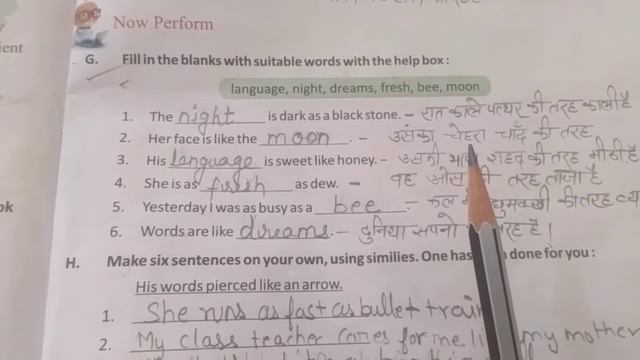 Now Perform
ient
G. Fill in the blanks with suitable words with the help box :
language, night, dreams, fresh, bee, moon
1. The night is dark as a black stone. - रात काले पत्थर की तरह काली है
2. Her face is like the moon. - उसका चेहरा चाँद की तरह
3. His language is sweet like honey. - उसकी शहद की तरह मीठी है
4. She is as fresh as dew. - वह ओस की तरह ताजा है
5. Yesterday I was as busy as a bee. - कल मैं की तरह
6. Words are like dreams. - दुनिया सपनो है।
ok
H. Make six sentences on your own, using similies. One has done for you :
His words pierced like an arrow.
1. She runs as fast as bullet train
2. My class teacher cares for me my mother